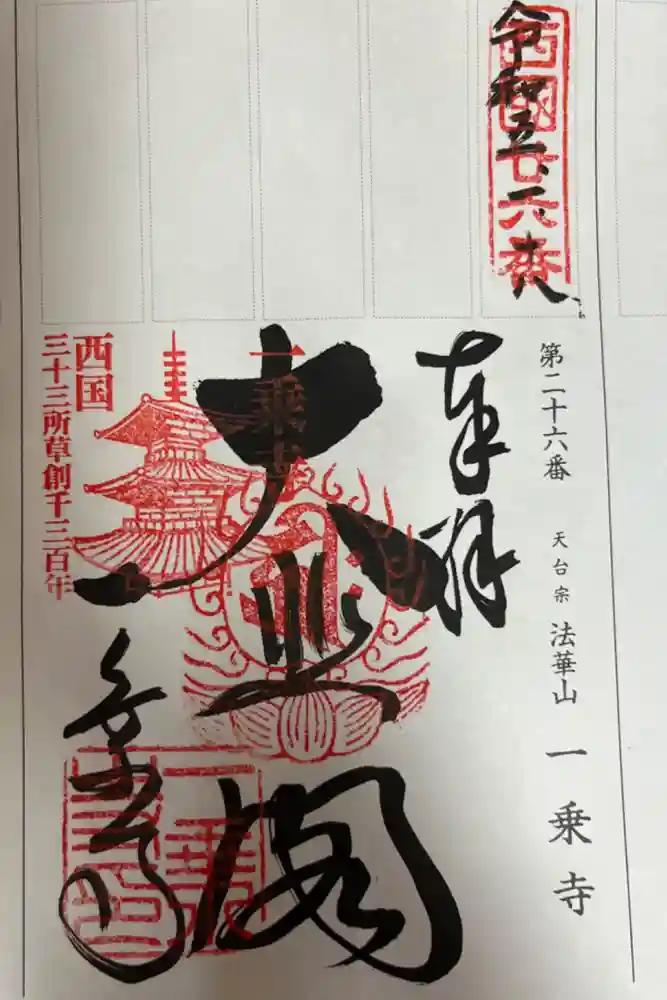 令和五、二、十八
西國廿六番
第二十六番 天台宗 法華山 一乗寺
奉拝
一乗寺
大悲閣
一乗寺
西国
三十三所草創千三百年